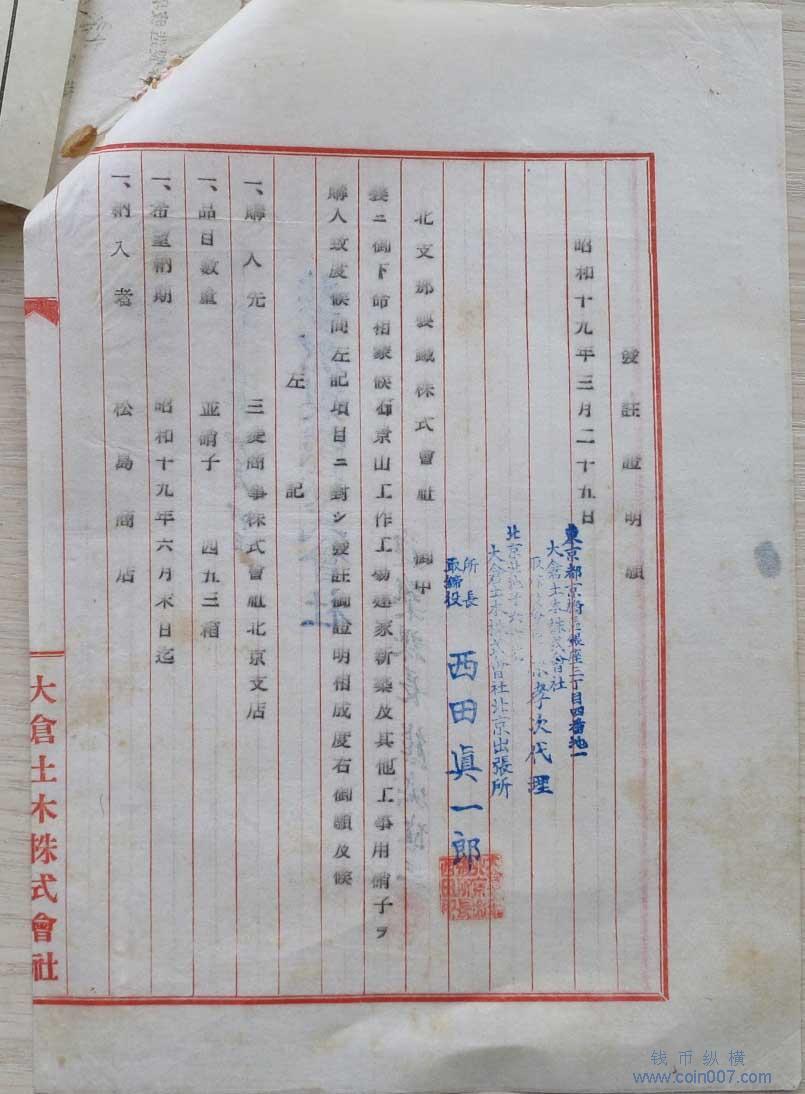 發註證明願
昭和十九年三月二十五日
東京都京橋區銀座三丁目四番地一
大倉土木株式會社
次代理
大倉土木株式會社北京出張所
所長
取締役
西田眞一郎
北支那製鐵株式會社 御中
襲ニ御下命相蒙候石景山工作工場建家新築及其他工事用硝子ヲ
購入致度候間左記項目ニ對シ發註御證明相成度右御願及候
左記
一、購入先 三菱商事株式會社北京支店
一、品目數量 並硝子 四五三箱
一、希望納期 昭和十九年六月末日迄
一、納入者 松島商店
大倉土木株式會社
钱币纵横
www.coin007.com